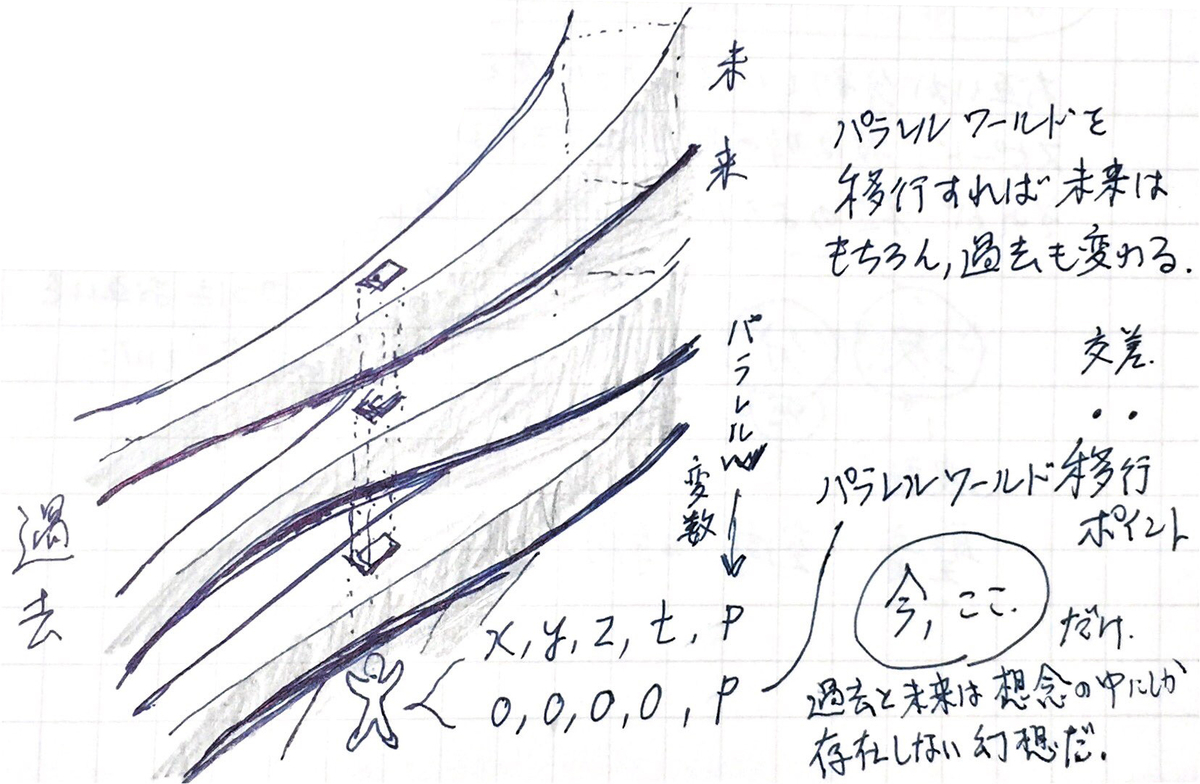 未来
パラレルワールドを
移行すれば未来は
もちろん,過去も変わる.
交差
パラレル
変数
パラレルワールド移行
ポイント
過去
今,ここ.
だけ.
x,y,z,t,P
0,0,0,0,P
過去と未来は想念の中にしか
存在しない幻想だ.